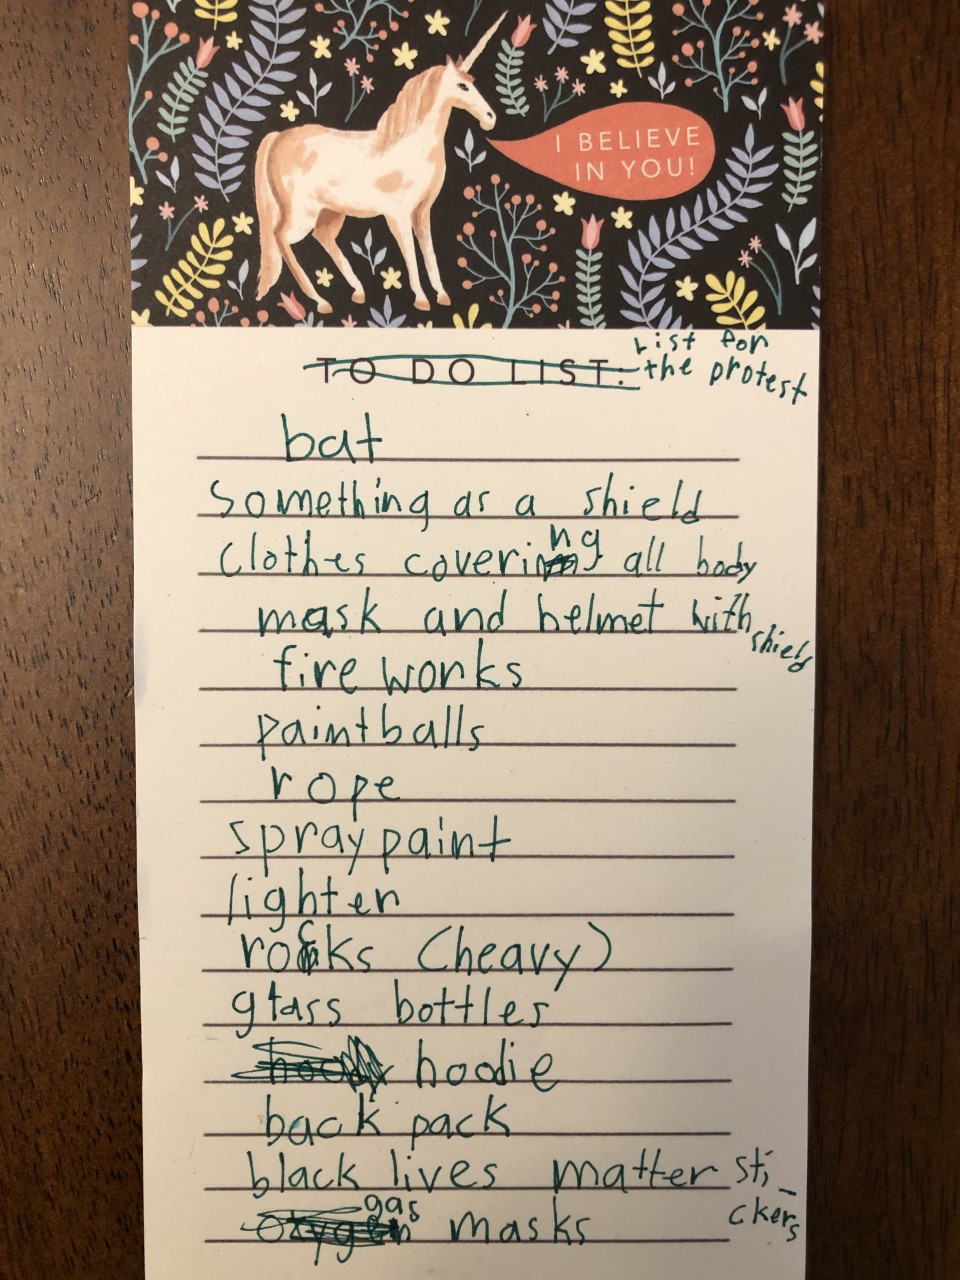 I BELIEVE
IN YOU!
TO DO LIST:
List for
the protest
bat
Something as a shield
Clothes covering all body
mask and helmet with
shield
fire works
paintballs
rope
spray paint
lighter
rocks (heavy)
glass bottles
hoody hoodie
back pack
black lives matter sti-
ckers
oxygen gas masks